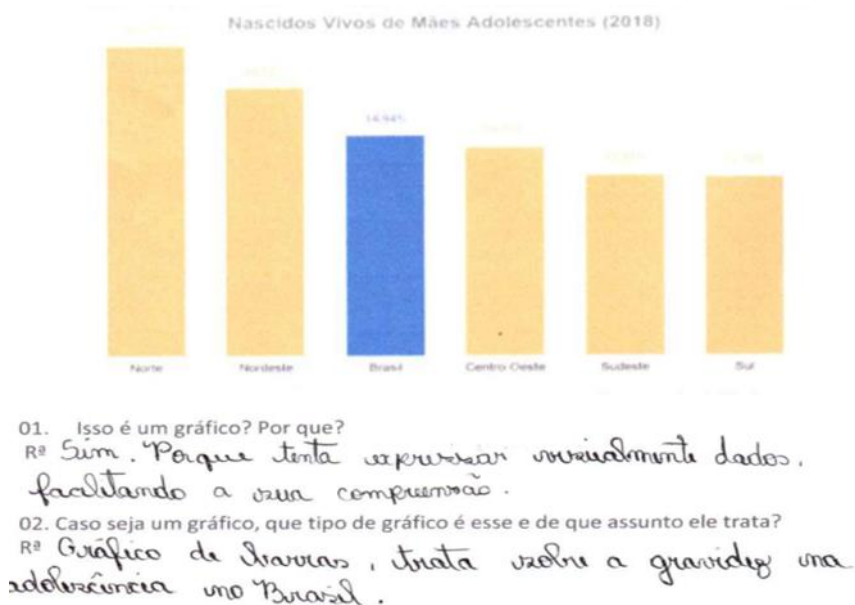 Nascidos Vivos de Mães Adolescentes (2018)
14.94%
Norte Nordeste Brasil Centro Oeste Sudeste Sul
01. Isso é um gráfico? Por que?
Rª Sim. Porque tenta expressar visualmente dados,
facilitando a sua compreensão.
02. Caso seja um gráfico, que tipo de gráfico é esse e de que assunto ele trata?
Rª Gráfico de barras, trata sobre a gravidez na
adolescência no Brasil.